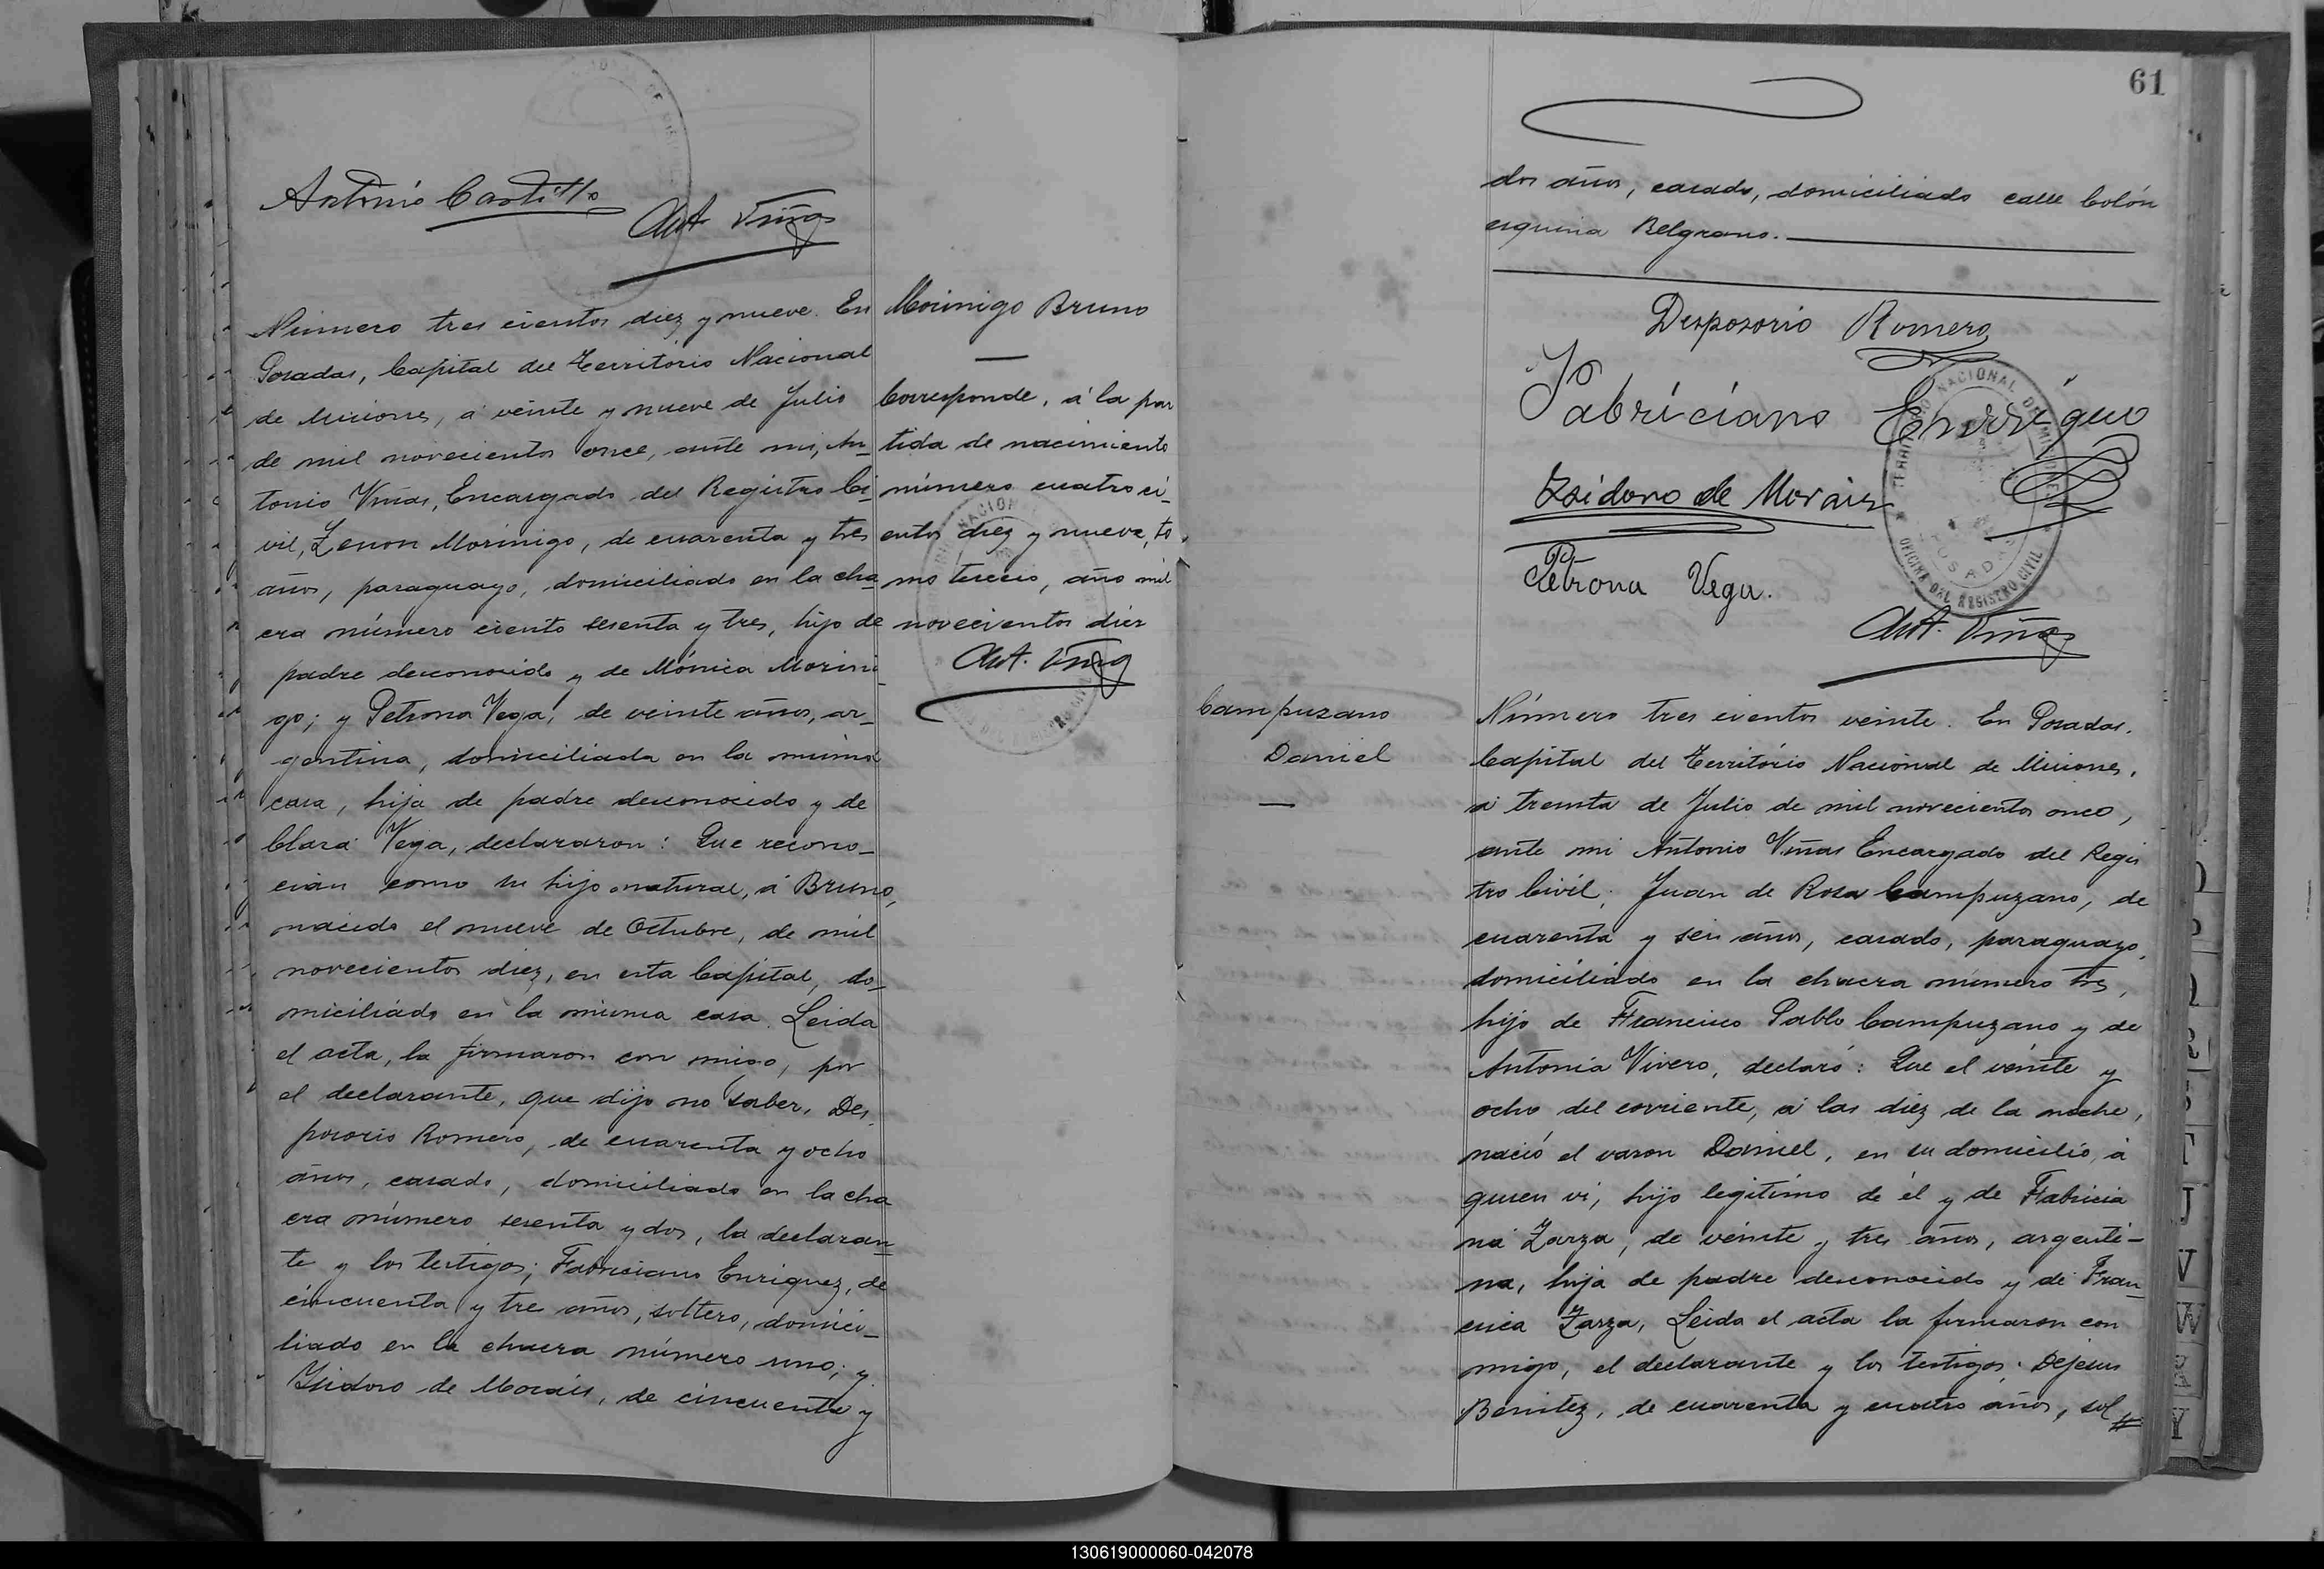 Antonio Castillo
Ant. Viñas
Número tres cientos diez y nueve. En
Posadas, Capital del Território Nacional
de Misiones, á veinte y nueve de Julio
de mil novecientos once, ante mi, An-
tonio Viñas, Encargado del Registro Ci-
vil, Zenon Morinigo, de cuarenta y tres
años, paraguayo, domiciliado en la cha-
cra número ciento sesenta y tres, hijo de
padre desconocido y de Mónica Morini-
go; y Petrona Vega, de veinte años, ar-
gentina, domiciliada en la misma
casa, hija de padre desconocido y de
Clara Vega, declararon: Que recono-
cian como su hijo natural, á Bruno,
nacido el nueve de Octubre, de mil
novecientos diez, en esta Capital, do-
miciliado en la misma casa. Leida
el acta, la firmaron con migo, por
el declarante, que dijo no saber, Des-
posorio Romero, de cuarenta y ocho
años, casado, domiciliado en la cha
cra número sesenta y dos, la declaran-
te y los testigos; Fabriciano Enriquez, de
cincuenta y tre años, soltero, domici-
liado en la chacra número uno; y
Isidoro de Morais, de cincuenta y
Morinigo Bruno
—
Corresponde, á la par
tida de nacimiento
número cuatro ci-
entos diez y nueve, to-
mo tercero, año mil
novecientos diez
Ant. Viñas
61
dos años, casado, domiciliado calle Colón
esquina Belgrano.
Desposorio Romero
Fabriciano Enrriquez
Isidoro de Morais
TERRITORIO NACIONAL DE MISIONES
POSADAS
OFICINA DEL REGISTRO CIVIL
Petrona Vega.
Ant. Viñas
Campuzano
Daniel
—
Número tres cientos veinte. En Posadas,
Capital del Território Nacional de Misiones,
á treinta de Julio de mil novecientos once,
ante mi Antonio Viñas Encargado del Regis
tro Civil, Juan de Rosa Campuzano, de
cuarenta y seis años, casado, paraguayo,
domiciliado en la chacra número tres,
hijo de Francisco Pablo Campuzano y de
Antonia Vivero, declaró: Que el veinte y
ocho del corriente, á las diez de la noche,
nació el varon Daniel, en su domicilio, á
quien vi, hijo legitimo de él y de Fabricia
na Zarza, de veinte y tres años, argenti-
na, hija de padre desconocido y de Fran-
cisca Zarza, Leida el acta la firmaron con
migo, el declarante y los testigos: Dejesus
Benitez, de cuarenta y cuatro años, sol
130619000060-042078